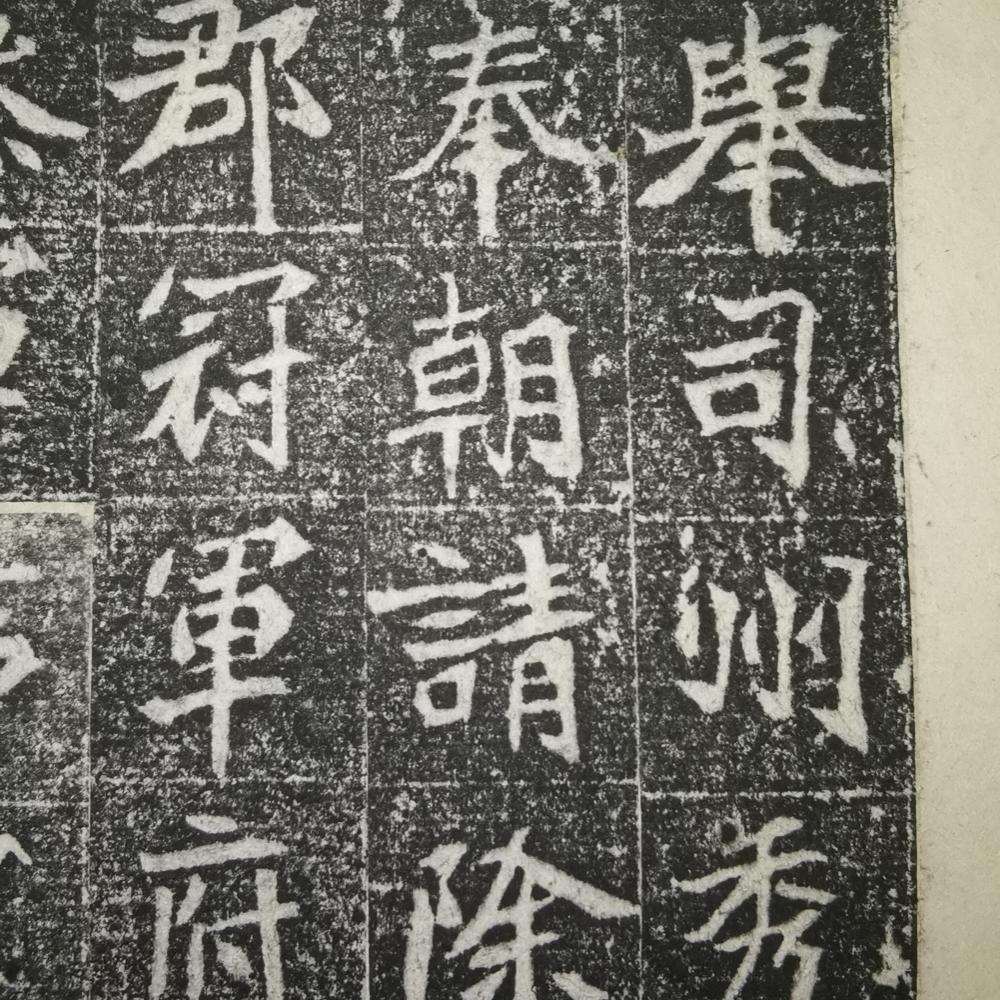 舉司州秀
奉朝請除
郡冠軍府